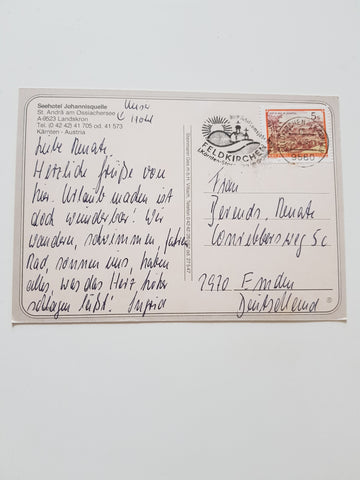 Seehotel Johannisquelle
St. Andrä am Ossiachersee
A-9523 Landskron
Tel. (0 42 42) 41 705 od. 41 573
Kärnten - Austria
Unser
Hotel
Liebe Renate
Herzliche Grüße von
hier. Urlaub machen ist
doch wunderbar! Wir
wandern, schwimmen, fahren
Rad, sonnen uns, haben
alles, was das Herz höher
schlagen läßt! Ingrid
FELDKIRCHEN
9560
5 S
Frau
Berends, Renate
Conrebbersweg 5c
2970 Emden
Deutschland